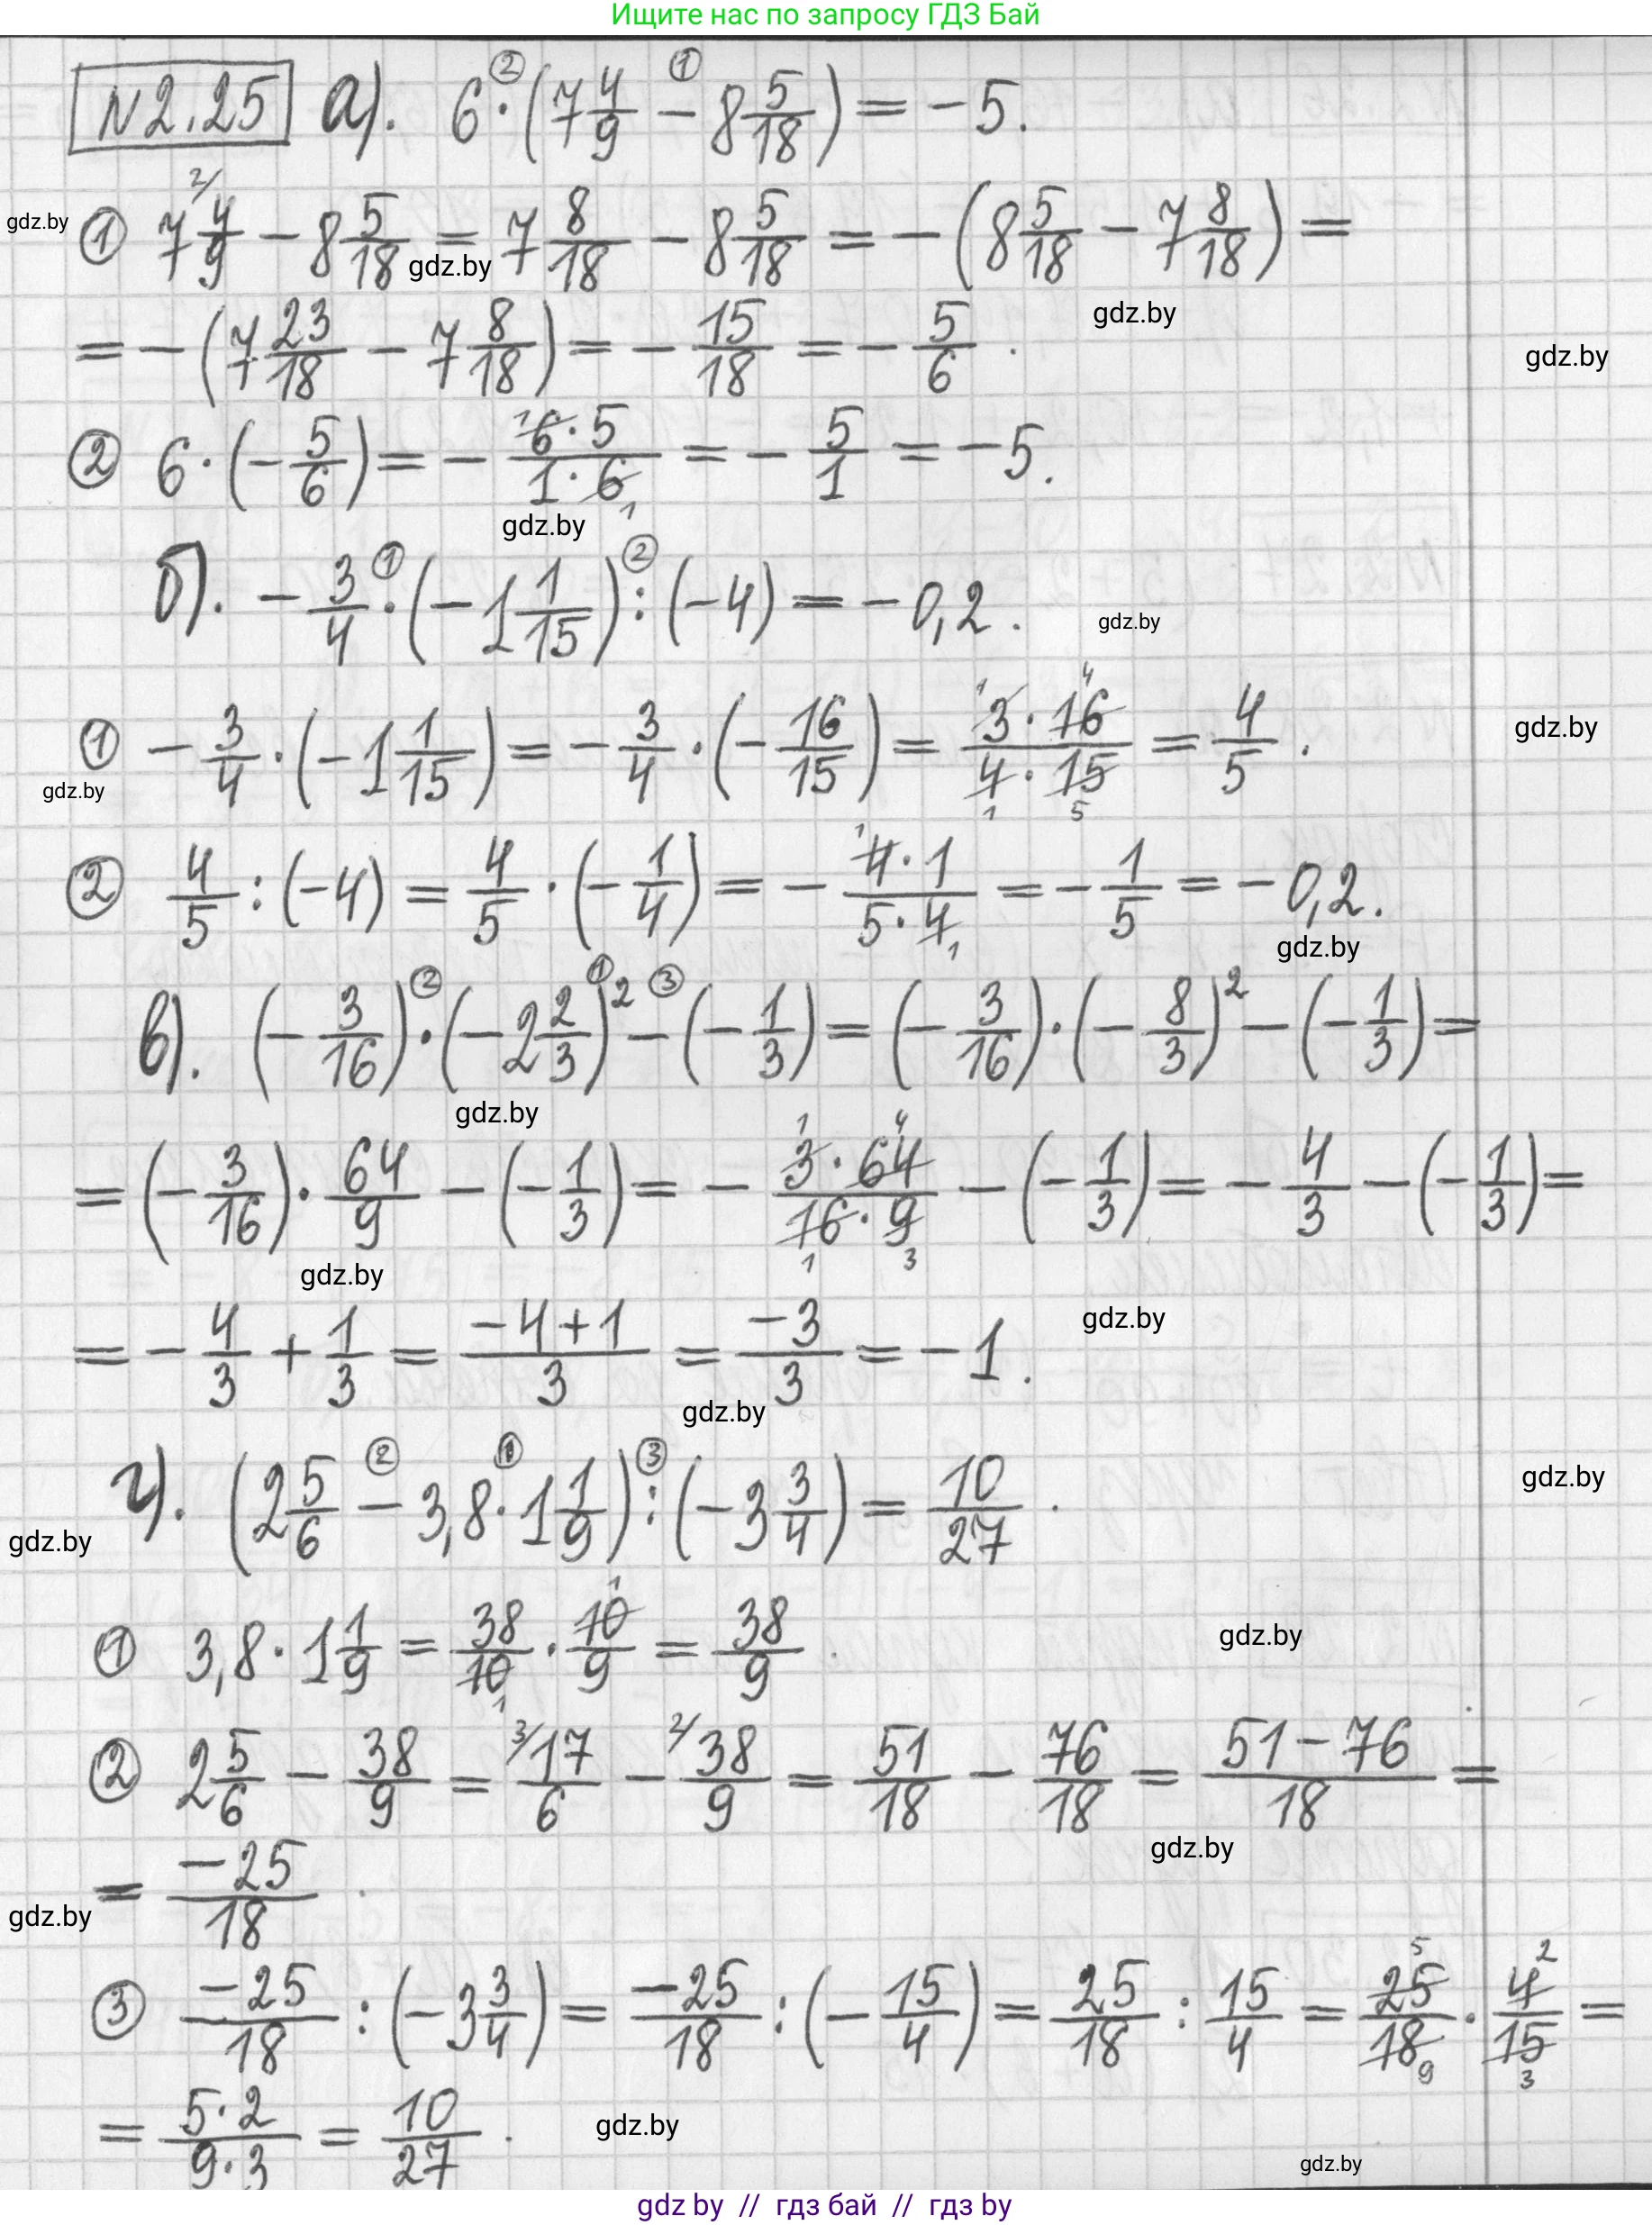 Ищите нас по запросу ГДЗ Бай
№2.25 а). 6 ② · (7 4/9 ① − 8 5/18) = −5.
① 7 4/9 ²⁄ − 8 5/18 = 7 8/18 − 8 5/18 = −(8 5/18 − 7 8/18) =
gdz.by
gdz.by
= −(7 23/18 − 7 8/18) = −15/18 = −5/6.
gdz.by
gdz.by
② 6 · (−5/6) = −(6 · 5)/(1 · 6) = −5/1 = −5.
gdz.by
б). −3/4 ① · (−1 1/15) ② : (−4) = −0,2.
gdz.by
① −3/4 · (−1 1/15) = −3/4 · (−16/15) = (3 · 16)/(4 · 15) = 4/5.
gdz.by
gdz.by
② 4/5 : (−4) = 4/5 · (−1/4) = −(4 · 1)/(5 · 4) = −1/5 = −0,2.
gdz.by
в). (−3/16) ② · (−2 2/3)² ① ③ − (−1/3) = (−3/16) · (−8/3)² − (−1/3) =
gdz.by
= (−3/16) · 64/9 − (−1/3) = −(3 · 64)/(16 · 9) − (−1/3) = −4/3 − (−1/3) =
gdz.by
= −4/3 + 1/3 = (−4+1)/3 = −3/3 = −1.
gdz.by
gdz.by
г). (2 5/6 ② − 3,8 ① · 1 1/9) ③ : (−3 3/4) = 10/27.
gdz.by
gdz.by
① 3,8 · 1 1/9 = 38/10 · 10/9 = 38/9.
gdz.by
② 2 5/6 − 38/9 = ³⁄ 17/6 − ²⁄ 38/9 = 51/18 − 76/18 = (51−76)/18 =
gdz.by
= −25/18.
gdz.by
③ −25/18 : (−3 3/4) = −25/18 : (−15/4) = 25/18 : 15/4 = 25/18 · 4/15 =
= (5·2)/(9·3) = 10/27.
gdz.by
gdz.by
gdz by // гдз бай // гдз by